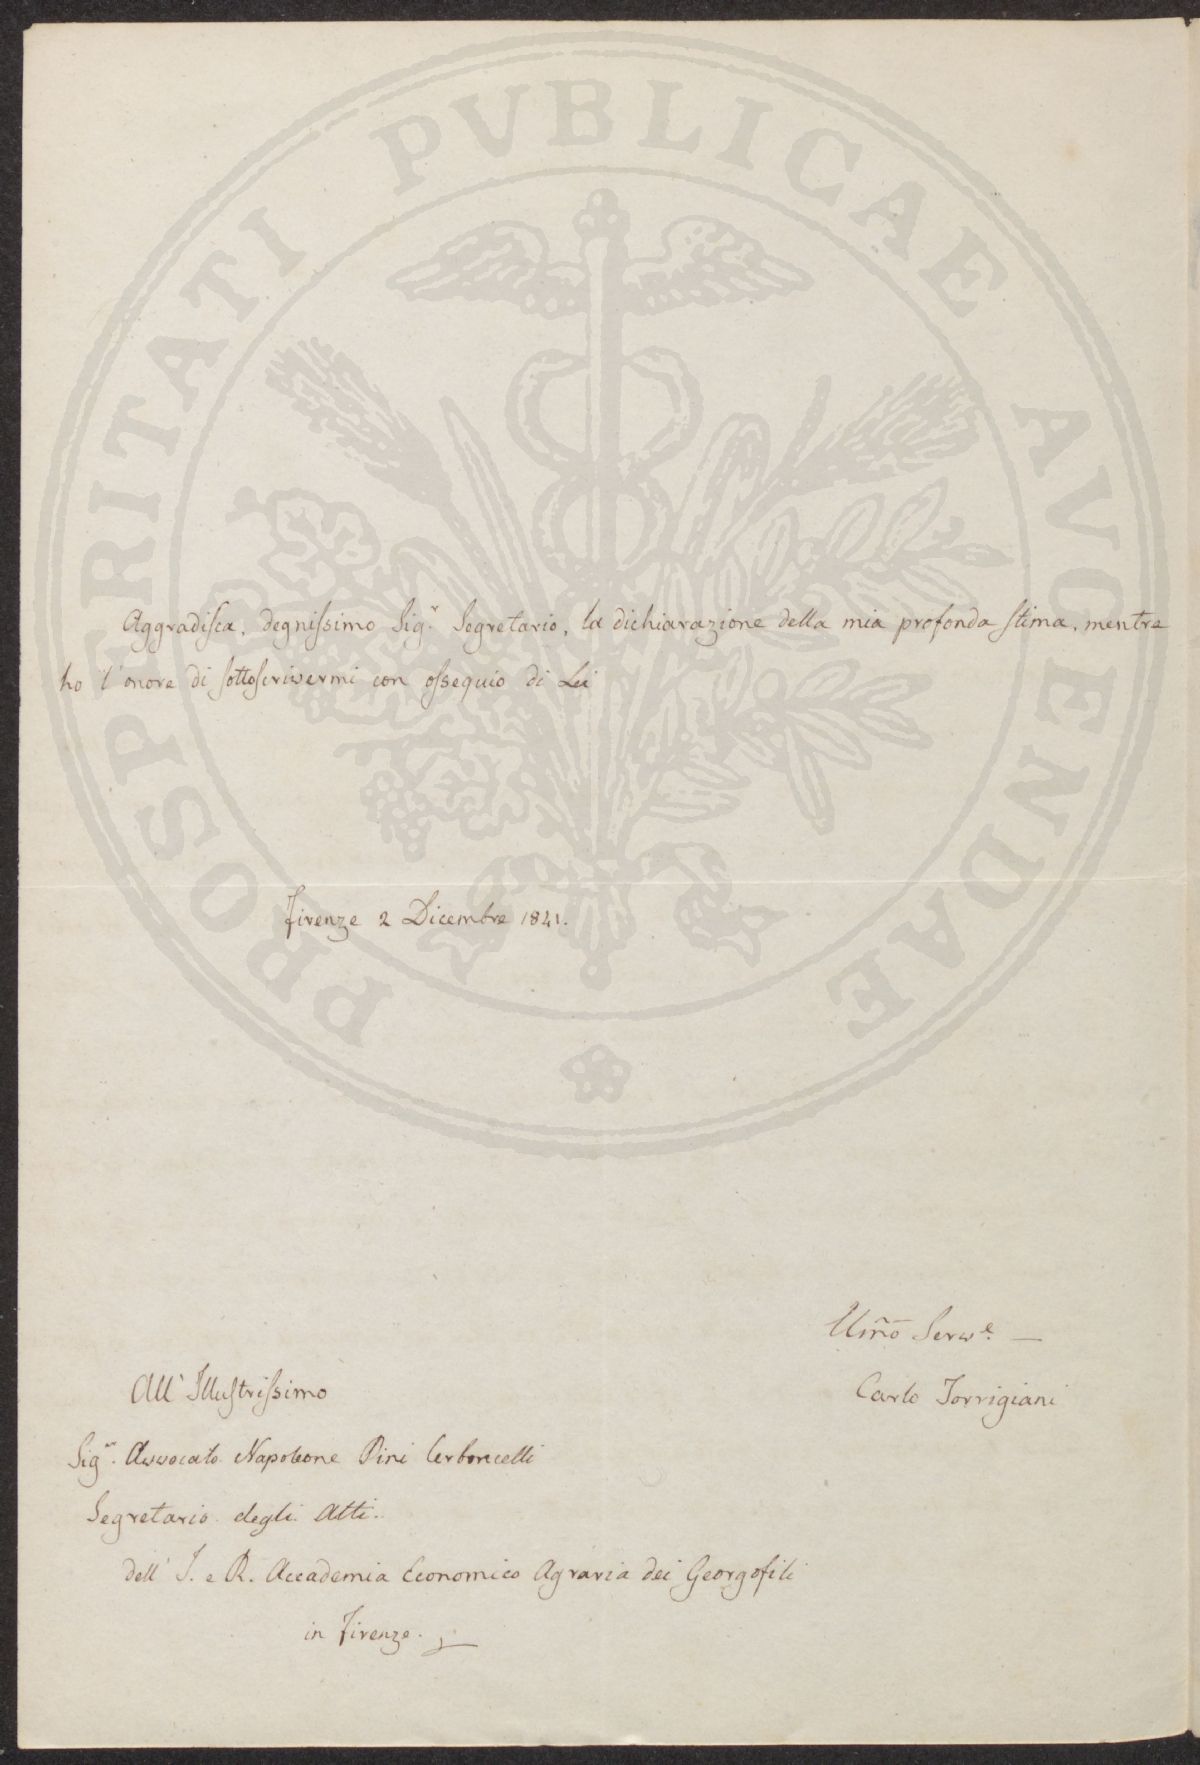 PROSPERITATI PVBLICAE AVGENDAE
Aggradisca, degnissimo Sig.r Segretario, la dichiarazione della mia profonda stima, mentre
ho l'onore di sottoscrivermi con ossequio di Lei
Firenze 2 Dicembre 1841.
Umo Serve. —
Carlo Torrigiani
All' Illustrissimo
Sig.r Avvocato Napoleone Pini
Segretario degli Atti.
dell' I. e R. Accademia Economico Agraria dei Georgofili
in Firenze.